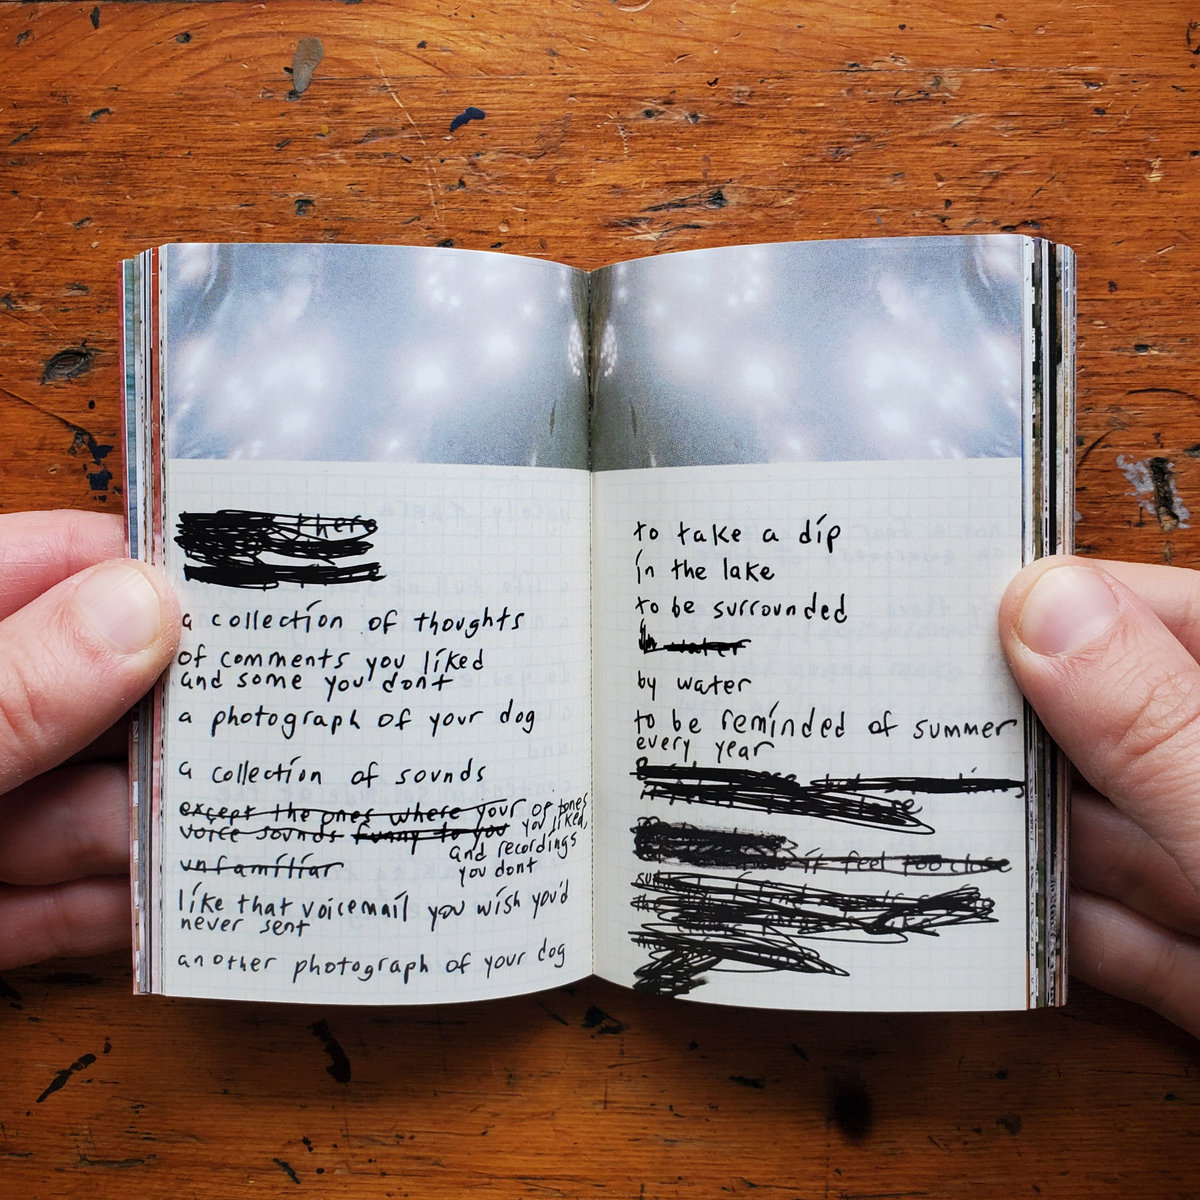 there
a collection of thoughts
of comments you liked
and some you dont
a photograph of your dog
a collection of sounds
except the ones where your of tones
voice sounds funny to you you liked,
and recordings
unfamiliar you dont
like that voicemail you wish you'd
never sent
another photograph of your dog
to take a dip
in the lake
to be surrounded
in water
by water
to be reminded of summer
every year
it feel too close